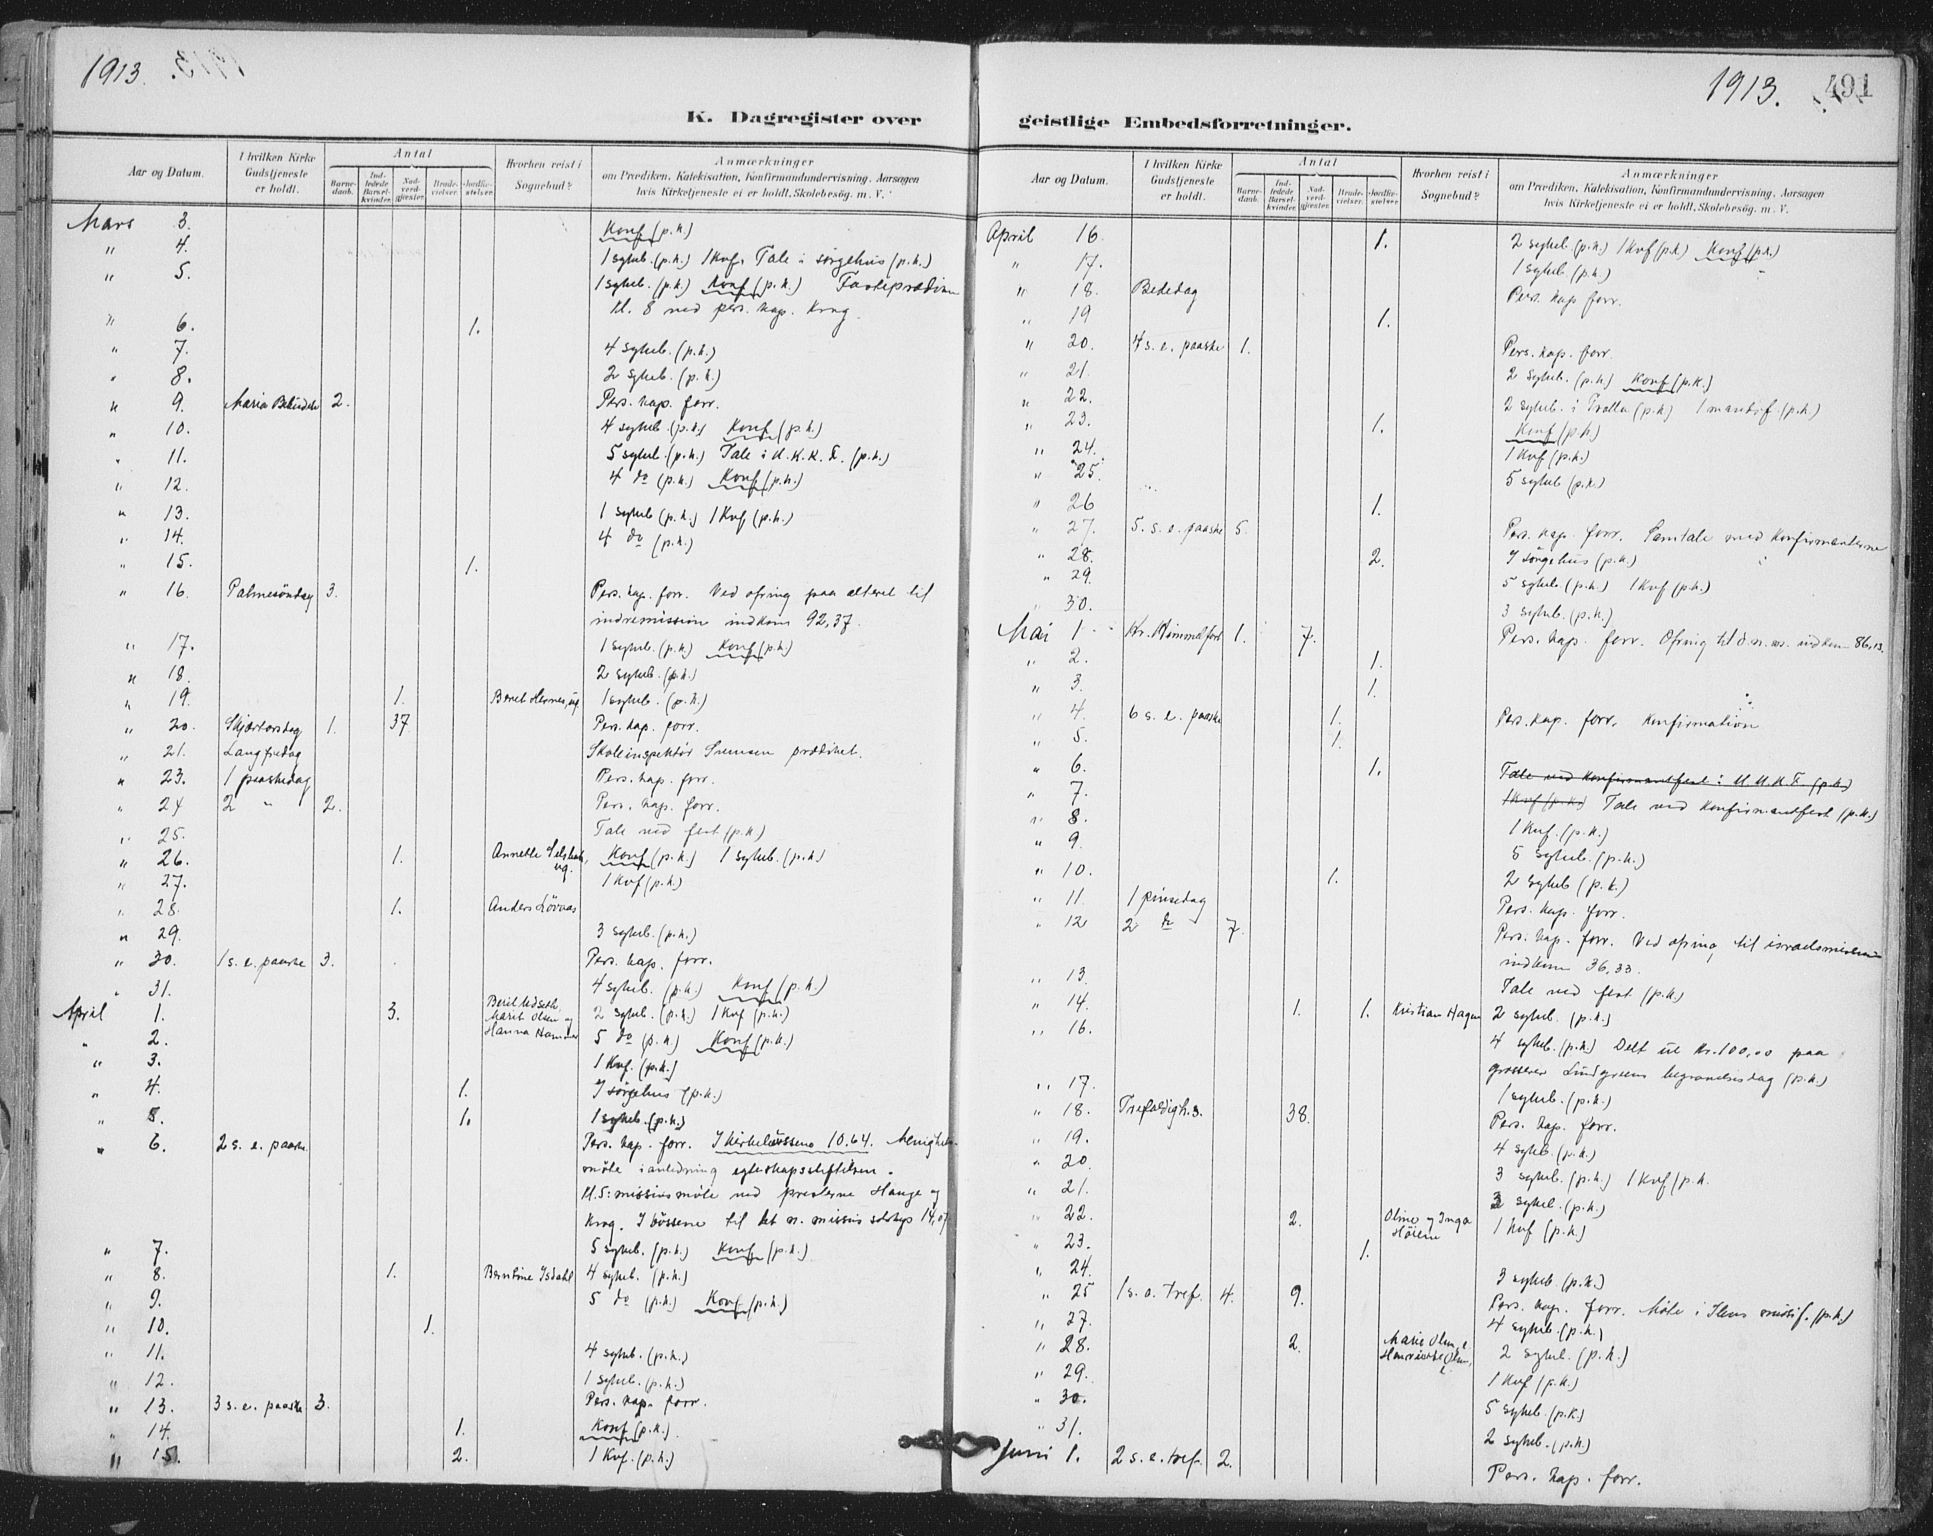 1913.
K. Dagregister over
Aar og Datum. I hvilken Kirke Gudstjeneste er holdt. Antal Barnedaab. Indledede Barselkvinder. Nadverdgjester. Brudevielser. Jordfæstelser. Hvorhen reist i Sognebud? Anmærkninger om Prædiken, Katekisation, Konfirmandundervisning, Aarsagen hvis Kirketjeneste ei er holdt, Skolebesøg. m. V.
Mars 3. Konf (p.k)
" 4. 1 sykeb. (p.k.) 1 Kvf. Tale i sørgehus (p.k.)
" 5. 1 sykeb. (p.k.) Konf (p.k.)
kl. 8 ved pers. kap. Krag.
" 6. 1.
" 7. 4 sykeb. (p.k.)
" 8. 2 sykeb. (p.k.)
" 9. Maria 2. Pers. kap. forr.
" 10. 4 sykeb. (p.k) Konf (p.k.)
" 11. 5 sykeb. (p.k.) Tale i (p.k.)
" 12. 4 do (p.k.) Konf (p.k.)
" 13. 1 sykeb (p.k.) 1 Kvf (p.k.)
" 14. 4 do (p.k.)
" 15. 1.
" 16. Palmesöndag 3. Pers. kap. forr. Ved ofring paa alteret til
indremission indkom 92,37.
" 17. 1 sykeb. (p.k) Konf (p.k)
" 18. 2 sykeb. (p.k.)
" 19. 1. 1 sykeb. (p.k)
" 20. Skjærtorsdag 1. 37 Pers. kap. forr.
" 21. Langfredag Skoleinspektør prædiket.
" 23. 1 paaskedag Pers. kap. forr.
" 24 2 " 2. Pers. kap. forr.
" 25. Tale ved fest (p.k)
" 26. 1. Annette Konf (p.k.) 1 sykeb. (p.k)
" 27. 1 Kvf (p.k.)
" 28. 1. Anders Lövaas
" 29. 3 sykeb. (p.k.)
" 30. 1 s. e. paaske 3. Pers. kap. forr.
" 31. 4 sykeb. (p.k.) Konf (p.k.)
April 1. 3. Marit Olsen og 2 sykeb. (p.k.) 1 Kvf (p.k.)
" 2. 5 do (p.k.) Konf (p.k.)
" 3. 1 Kvf. (p.k.)
" 4. 1. I sörgehus (p.k.)
" 5. 1. 1 sykeb. (p.k.)
" 6. 2 s. e. paaske Pers. kap. forr. I kirkebössene 10.64.
möte i anledning egteskapsstiftelsen.
Kl. 5: missionsmöte ved presterne Hauge og
Krag. I bössene til det n. missionsselskap 14,07
" 7. 5 sykeb. (p.k.) Konf (p.k.)
" 8. 1. Berntine Isdahl 4 sykeb. (p.k.)
" 9. 5 do (p.k.) Konf (p.k.)
" 10. 1.
" 11. 4 sykeb. (p.k.)
" 12. 1 sykeb. (p.k.)
" 13. 3 s. e. paaske 3. Pers. kap. forr.
" 14. 1. Konf (p.k.)
" 15. 2. 1 Kvf. (p.k.)
1913. 491
geistlige Embedsforretninger.
Aar og Datum. I hvilken Kirke Gudstjeneste er holdt. Antal Barnedaab. Indledede Barselkvinder. Nadverdgjester. Brudevielser. Jordfæstelser. Hvorhen reist i Sognebud? Anmærkninger om Prædiken, Katekisation, Konfirmandundervisning, Aarsagen hvis Kirketjeneste ei er holdt, Skolebesøg. m. V.
April 16. 1. 2 sykeb. (p.k.) 1 Kvf (p.k) Konf (p.k.)
" 17. 1 sykeb (p.k.)
" 18. Bededag Pers. kap forr.
" 19 1.
" 20. 4 s. e. paaske 1. Pers. kap. forr.
" 21. 2 sykeb. (p.k) Konf (p.k.)
" 22. 2 sykeb. i (p.k)
" 23. 1. Konf (p.k)
" 24. 1 Kvf (p.k.)
" 25. 5 sykeb (p.k.)
" 26 1.
" 27. 5. s. e. paaske 5. Pers. kap. forr. Samtale med konfirmanterne
" 28. 2. I sörgehus (p.k.)
" 29. 5 sykeb (p.k.) 1 Kvf (p.k.)
" 30. 3 sykeb. (p.k.)
Mai 1. Kr. Himmelfart 1. 7. Pers. kap. forr. Ofring til d.n.ms. indkom 86,13.
" 2. 1.
" 3. 1.
" 4. 6 s. e. paaske 1. Pers. kap. forr. Konfirmation
" 5. 1.
" 6. 1. Tale ved konfirmantfest i (p.k)
" 7. 1 Kvf (p.k.) Tale ved konfirmantfest (p.k.)
" 8. 1 Kvf. (p.k.)
" 9. 5 sykeb. (p.k.)
" 10. 1. 2 sykeb (p.k.)
" 11. 1 pinsedag Pers. kap. forr.
" 12 2 do 7. Pers. kap. forr. Ved ofring til israelsmissionen
indkom 36,33.
" 13. Tale ved fest (p.k.)
" 14. 1. 1. Kristian Hagen 2 sykeb. (p.k.)
" 16. 4 sykeb. (p.k) Delt ut Kr. 100,00 paa
grosserer Lundgreens begravelsesdag (p.k.)
" 17. 1 sykeb. (p.k.)
" 18. Trefoldigh.s. 38. Pers. kap. forr.
" 19. 4 sykeb. (p.k.)
" 20. 3 sykeb. (p.k.) 1 Kvf (p.k.
" 21. 2 sykeb. (p.k.)
" 22. 2. Oline og Inga 1 Kvf (p.k.)
" 23. 1.
" 24. 3 sykeb. (p.k.)
" 25 1 s. e. tref. 4. 9. Pers. kap. forr. Möte i Ilens misf. (p.k.)
" 27. 4 sykeb. (p.k.)
" 28. 2. Marie Olsen 2 sykeb. (p.k.)
" 29. 1 Kvf (p.k.)
" 30. 5 sykeb. (p.k.)
" 31. 2 sykeb. (p.k.)
Juni 1. 2 s. e. tref. 2. Pers. kap. forr.